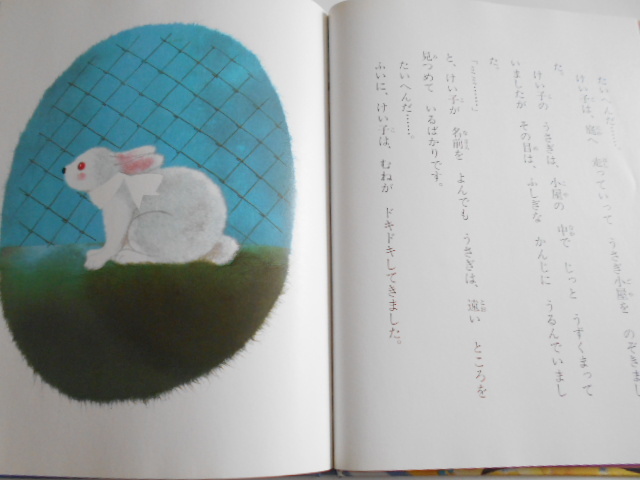 たいへんだ……。
けい子は、庭へ 走っていって うさぎ小屋を のぞきまし
た。
けい子の うさぎは、小屋の 中で じっと うずくまって
いましたが その目は、ふしぎな かんじに うるんでいまし
た。
「ミミ……」
と、けい子が 名前を よんでも うさぎは、遠い ところを
見つめて いるばかりです。
たいへんだ……。
ふいに、けい子は、むねが ドキドキしてきました。